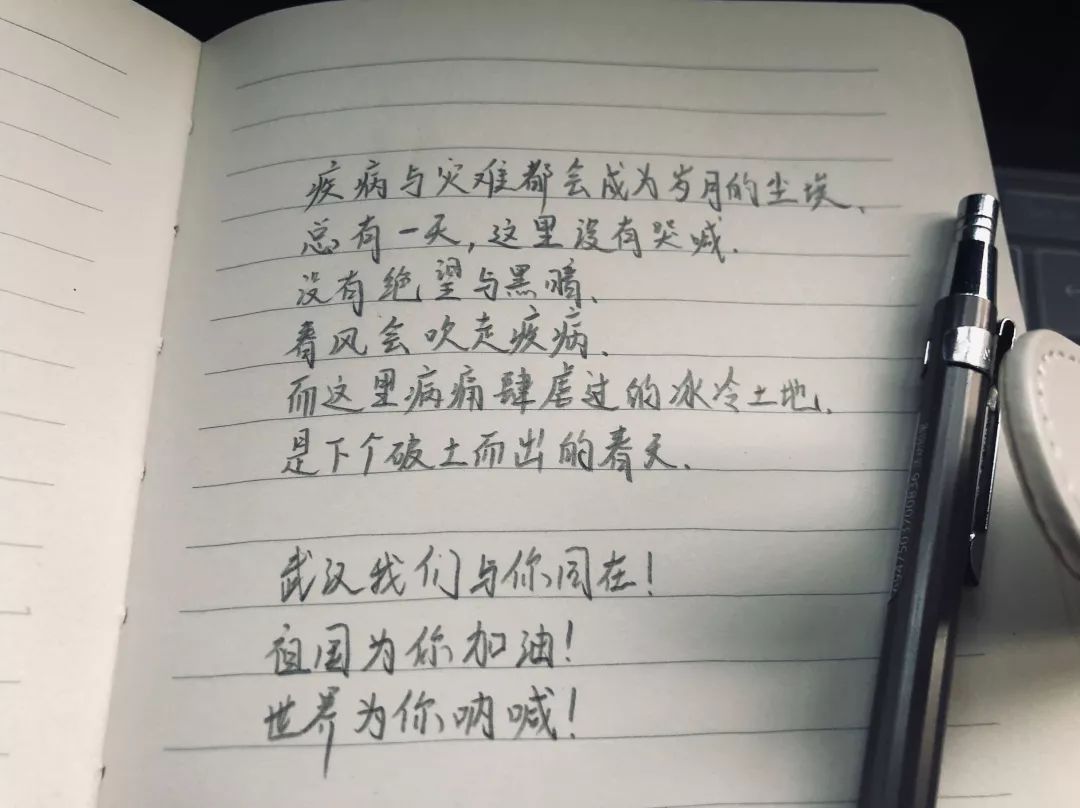 疾病与灾难都会成为岁月的尘埃、
总有一天,这里没有哭喊.
没有绝望与黑暗、
春风会吹走疾病、
而这里病痛肆虐过的冰冷土地、
是下个破土而出的春天、
武汉我们与你同在!
祖国为你加油!
世界为你呐喊!